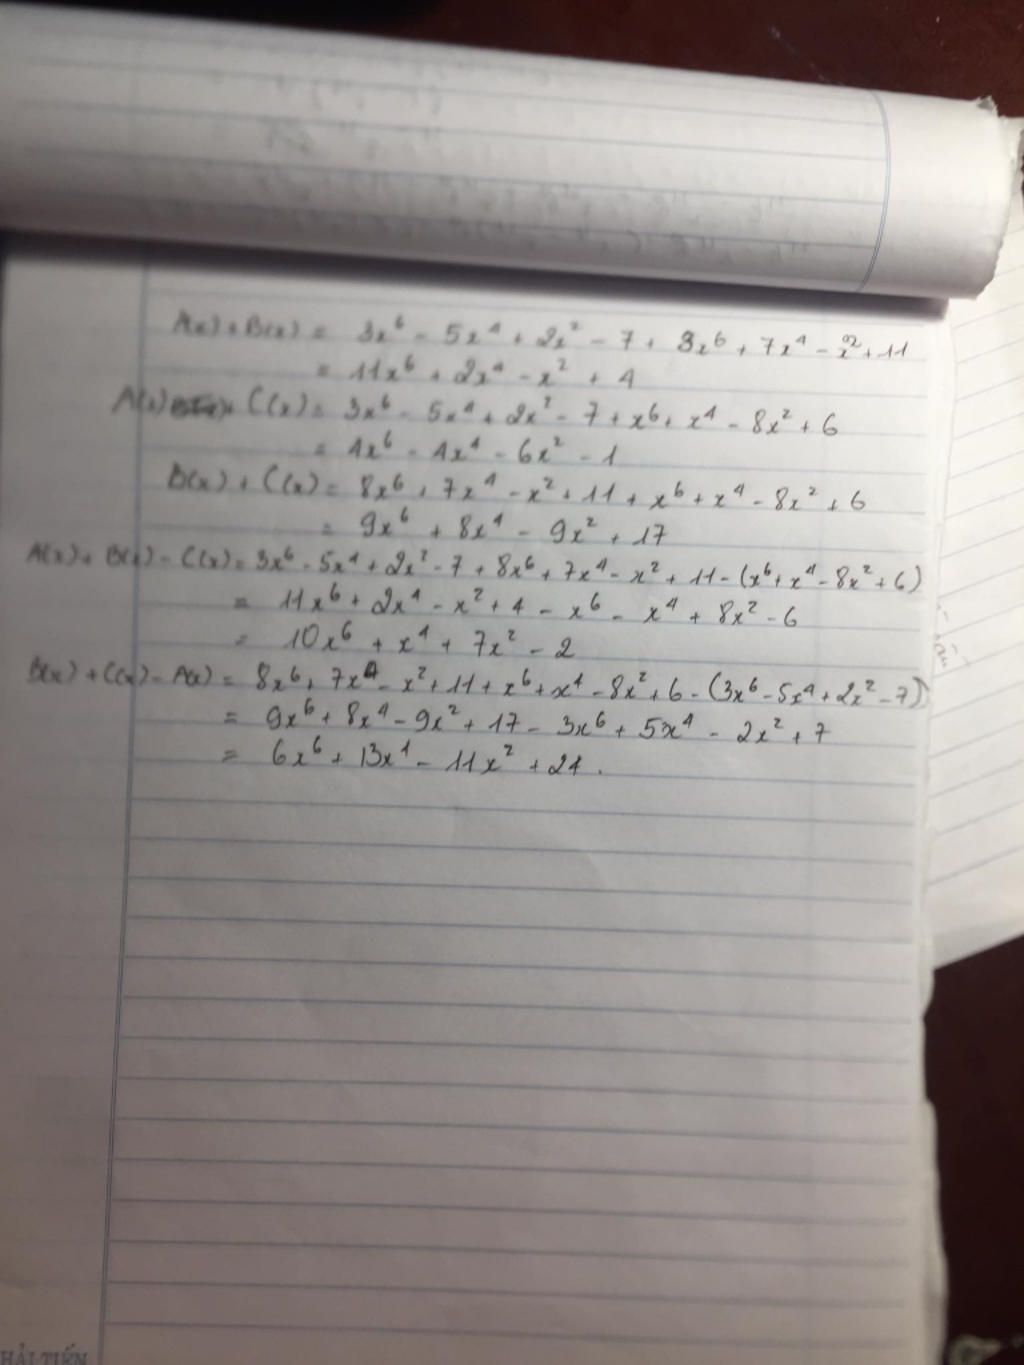 A(x) + B(x) = 3x⁶ - 5x⁴ + 2x² - 7 + 8x⁶ + 7x⁴ - x² + 11
= 11x⁶ + 2x⁴ - x² + 4
A(x) + C(x) = 3x⁶ - 5x⁴ + 2x² - 7 + x⁶ + x⁴ - 8x² + 6
= 4x⁶ - 4x⁴ - 6x² - 1
B(x) + C(x) = 8x⁶ + 7x⁴ - x² + 11 + x⁶ + x⁴ - 8x² + 6
= 9x⁶ + 8x⁴ - 9x² + 17
A(x) + B(x) - C(x) = 3x⁶ - 5x⁴ + 2x² - 7 + 8x⁶ + 7x⁴ - x² + 11 - (x⁶ + x⁴ - 8x² + 6)
= 11x⁶ + 2x⁴ - x² + 4 - x⁶ - x⁴ + 8x² - 6
= 10x⁶ + x⁴ + 7x² - 2
B(x) + C(x) - A(x) = 8x⁶ + 7x⁴ - x² + 11 + x⁶ + x⁴ - 8x² + 6 - (3x⁶ - 5x⁴ + 2x² - 7)
= 9x⁶ + 8x⁴ - 9x² + 17 - 3x⁶ + 5x⁴ - 2x² + 7
= 6x⁶ + 13x⁴ - 11x² + 24.
HẢI TIẾN